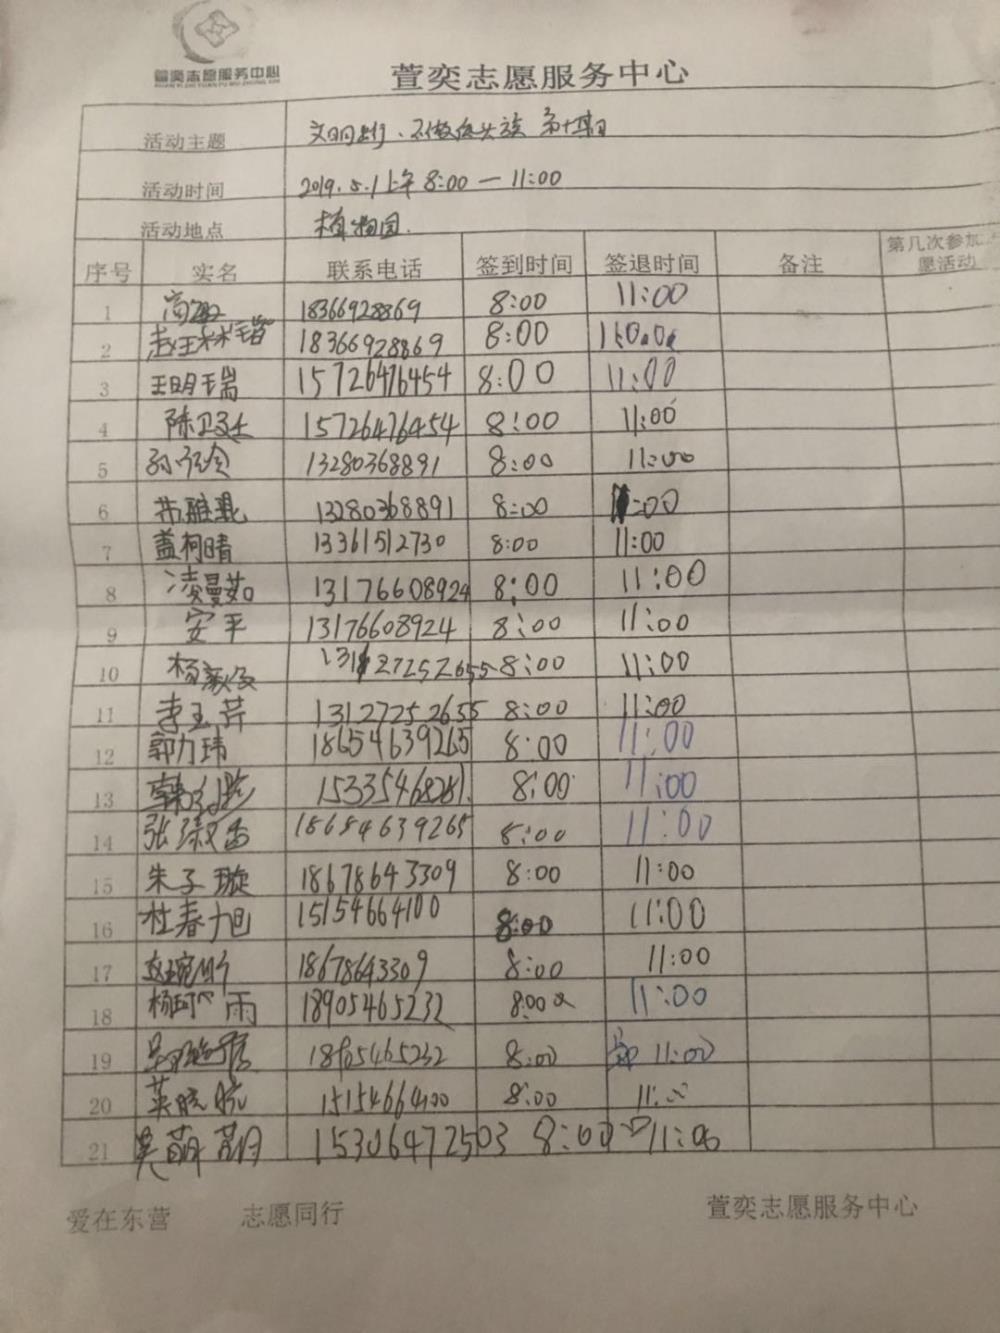 萱奕志愿服务中心
萱奕志愿服务中心
活动主题 文明出行、不做低头族 第十期
活动时间 2019.5.1上午8:00—11:00
活动地点 植物园.
序号 实名 联系电话 签到时间 签退时间 备注 第几次参加志愿活动
1 高 18366928869 8:00 11:00
2 赵 18366928869 8:00
3 王明瑞 15726476454 8:00 11:00
4 陈卫廷 15726476454 8:00 11:00
5 孙 13280368891 8:00 11:00
6 13280368891 8:00 11:00
7 盖柯晴 13361512730 8:00 11:00
8 凌曼茹 13176608924 8:00 11:00
9 安平 13176608924 8:00 11:00
10 杨 13127252655 8:00 11:00
11 李玉芹 13127252655 8:00 11:00
12 郭力玮 18654639265 8:00 11:00
13 韩 15335468281 8:00 11:00
14 张淑香 18684639265 8:00 11:00
15 朱子璇 18678643309 8:00 11:00
16 杜春旭 15154664100 8:00 11:00
17 赵 18678643309 8:00 11:00
18 杨 雨 18905465232 8:00 11:00
19 18905465232 8:00 11:00
20 15154664100 8:00 11:00
21 吴萌萌 15306472503 8:00 11:00
爱在东营 志愿同行 萱奕志愿服务中心